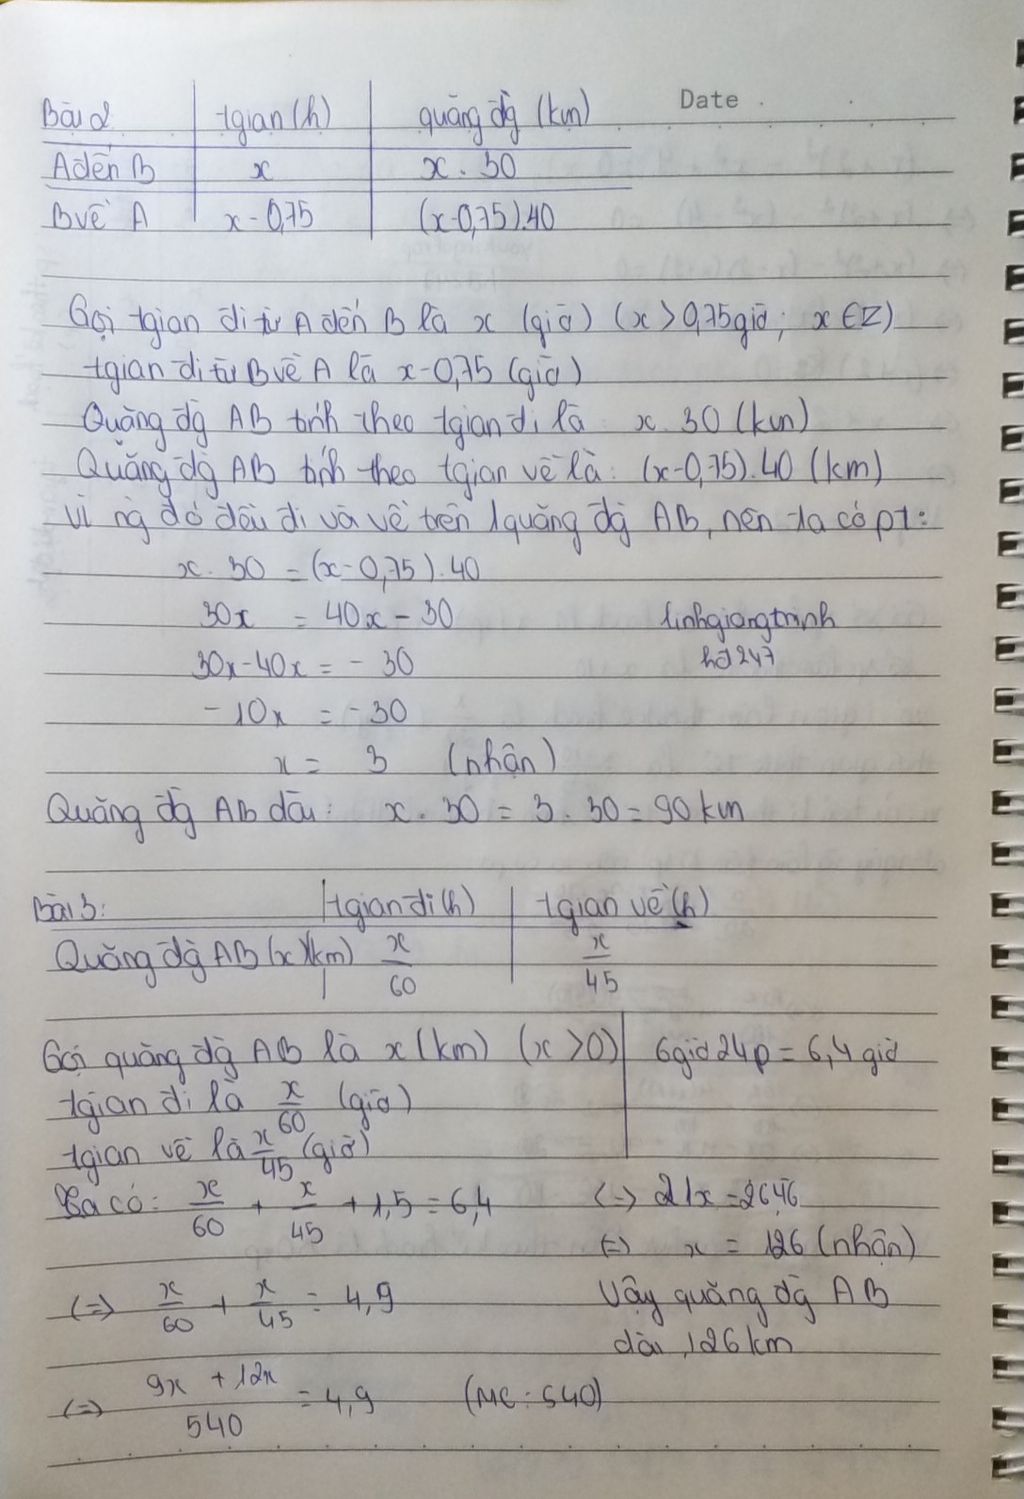 Date
Bài 2 tgian (h) quãng đg (km)
A đến B x x . 30
B về A x - 0,75 (x-0,75).40
Gọi tgian đi từ A đến B là x (giờ) (x > 0,75 giờ; x ∈ Z)
tgian đi từ B về A là x-0,75 (giờ)
Quãng đg AB tính theo tgian đi là x. 30 (km)
Quãng đg AB tính theo tgian về là: (x-0,75).40 (km)
Vì ng đó đều đi và về trên 1 quãng đg AB, nên ta có pt:
x. 30 = (x-0,75).40
30x = 40x - 30
linhgiangtrinh
hd247
30x-40x = - 30
-10x = -30
x = 3 (nhận)
Quãng đg AB dài: x . 30 = 3 . 30 = 90 km
Bài 3: tgian đi (h) tgian về (h)
Quãng đg AB (x)(km) x/60 x/45
Gọi quãng đg AB là x (km) (x > 0) 6 giờ 24p = 6,4 giờ
tgian đi là x/60 (giờ)
tgian về là x/45 (giờ)
Ta có: x/60 + x/45 + 1,5 = 6,4
(=) x/60 + x/45 = 4,9
(=) 9x + 12x / 540 = 4,9 (MC : 540)
(=) 21x = 2646
(=) x = 126 (nhận)
Vậy quãng đg AB
dài 126 km